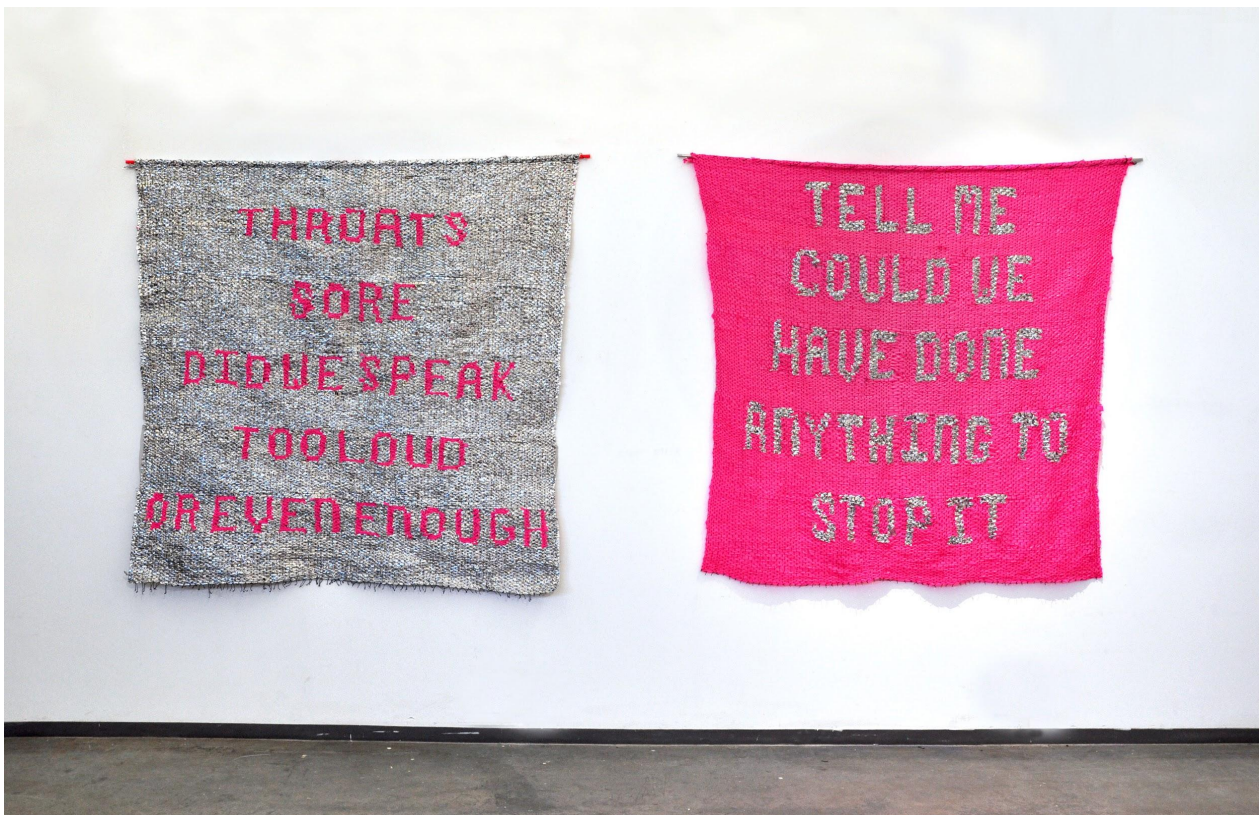 THROATS
SORE
DID WE SPEAK
TOO LOUD
OR EVEN ENOUGH
TELL ME
COULD WE
HAVE DONE
ANYTHING TO
STOP IT